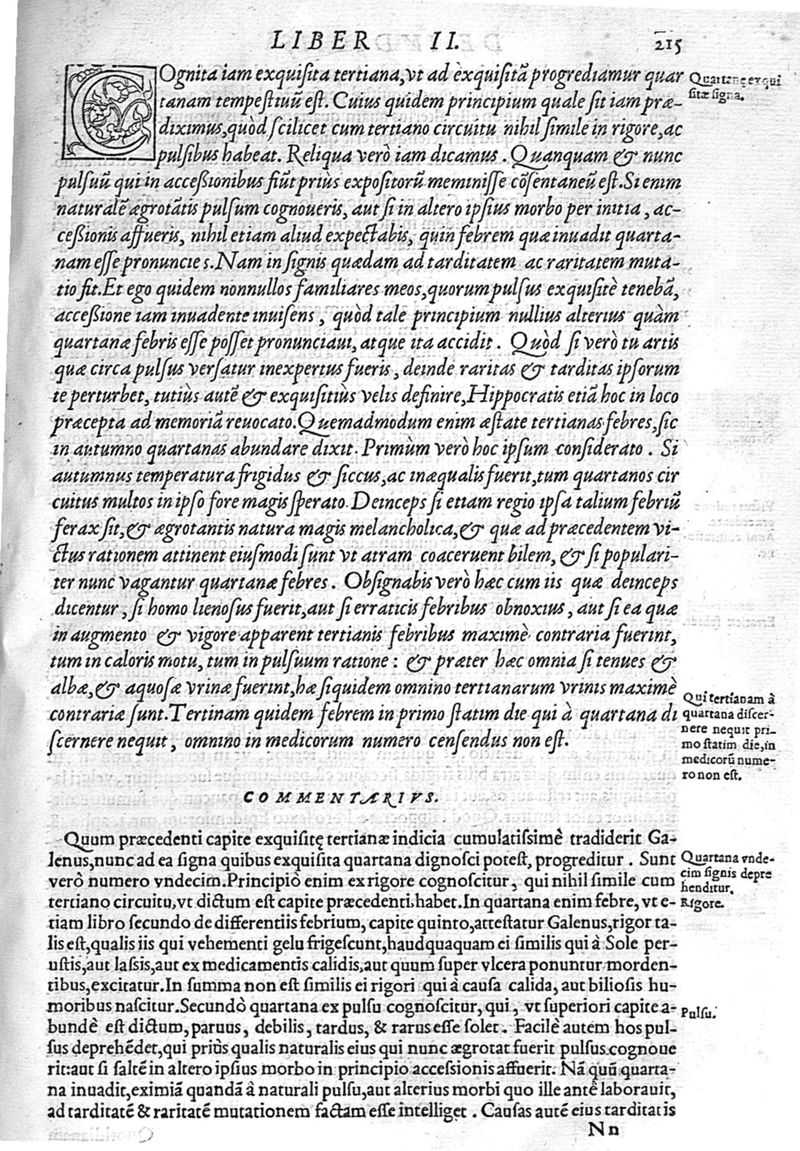 LIBER II. 215
COgnita iam exquisita tertiana, vt ad exquisitã progrediamur quar
tanam tempestiuũ est. Cuius quidem principium quale sit iam præ-
diximus, quòd scilicet cum tertiano circuitu nihil simile in rigore, ac
pulsibus habeat. Reliqua verò iam dicamus. Quanquam & nunc
pulsuũ qui in accessionibus fiũt priùs expositorũ meminisse cõsentaneũ est. Si enim
naturalẽ ægrotãtis pulsum cognoueris, aut si in altero ipsius morbo per initia, ac-
cessionis affueris, nihil etiam aliud expectabis, quin febrem quæ inuadit quarta-
nam esse pronuncies. Nam in signis quædam ad tarditatem ac raritatem muta-
tio fit. Et ego quidem nonnullos familiares meos, quorum pulsus exquisitè tenebã,
accessione iam inuadente inuisens, quòd tale principium nullius alterius quàm
quartanæ febris esse posset pronunciaui, atque ita accidit. Quòd si verò tu artis
quæ circa pulsus versatur inexpertus fueris, deinde raritas & tarditas ipsorum
te perturbet, tutiùs autẽ & exquisitiùs velis definire, Hippocratis etiã hoc in loco
præcepta ad memoriã reuocato. Quemadmodum enim æstate tertianas febres, sic
in autumno quartanas abundare dixit. Primùm verò hoc ipsum considerato. Si
autumnus temperatura frigidus & siccus, ac inæqualis fuerit, tum quartanos cir
cuitus multos in ipso fore magis sperato. Deinceps si etiam regio ipsa talium febriũ
ferax sit, & ægrotantis natura magis melancholica, & quæ ad præcedentem vi-
ctus rationem attinent eiusmodi sunt vt atram coaceruent bilem, & si populari-
ter nunc vagantur quartanæ febres. Obsignabis verò hæc cum iis quæ deinceps
dicentur, si homo lienosus fuerit, aut si erraticis febribus obnoxius, aut si ea quæ
in augmento & vigore apparent tertianis febribus maximè contraria fuerint,
tum in caloris motu, tum in pulsuum ratione: & præter hæc omnia si tenues &
albæ, & aquosæ vrinæ fuerint, hæ siquidem omnino tertianarum vrinis maximè
contrariæ sunt. Tertinam quidem febrem in primo statim die qui à quartana di
scernere nequit, omnino in medicorum numero censendus non est.
Quartanę exqui
sitæ signa.
Qui tertianam à
quartana discer-
nere nequit pri-
mo statim die, in
medicorũ nume-
ro non est.
COMMENTARIVS.
Quum præcedenti capite exquisitę tertianæ indicia cumulatissimè tradiderit Ga-
lenus, nunc ad ea signa quibus exquisita quartana dignosci potest, progreditur. Sunt
verò numero vndecim. Principiò enim ex rigore cognoscitur, qui nihil simile cum
tertiano circuitu, vt dictum est capite præcedenti habet. In quartana enim febre, vt e-
tiam libro secundo de differentiis febrium, capite quinto, attestatur Galenus, rigor ta-
lis est, qualis iis qui vehementi gelu frigescunt, haudquaquam ei similis qui à Sole per-
ustis, aut lassis, aut ex medicamentis calidis, aut quum super vlcera ponuntur morden-
tibus, excitatur. In summa non est similis ei rigori qui à causa calida, aut biliosis hu-
moribus nascitur. Secundò quartana ex pulsu cognoscitur, qui, vt superiori capite a-
bundè est dictum, paruus, debilis, tardus, & rarus esse solet. Facilè autem hos pul-
sus deprehẽdet, qui priùs qualis naturalis eius qui nunc ægrotat fuerit pulsus cognoue
rit: aut si saltẽ in altero ipsius morbo in principio accessionis affuerit. Nã quũ quarta-
na inuadit, eximiã quandã à naturali pulsu, aut alterius morbi quo ille antè laborauit,
ad tarditatẽ & raritatẽ mutationem factam esse intelliget. Causas autẽ eius tarditatis
Quartana vnde-
cim signis depre
henditur.
Rigore.
Pulsu.
Nn